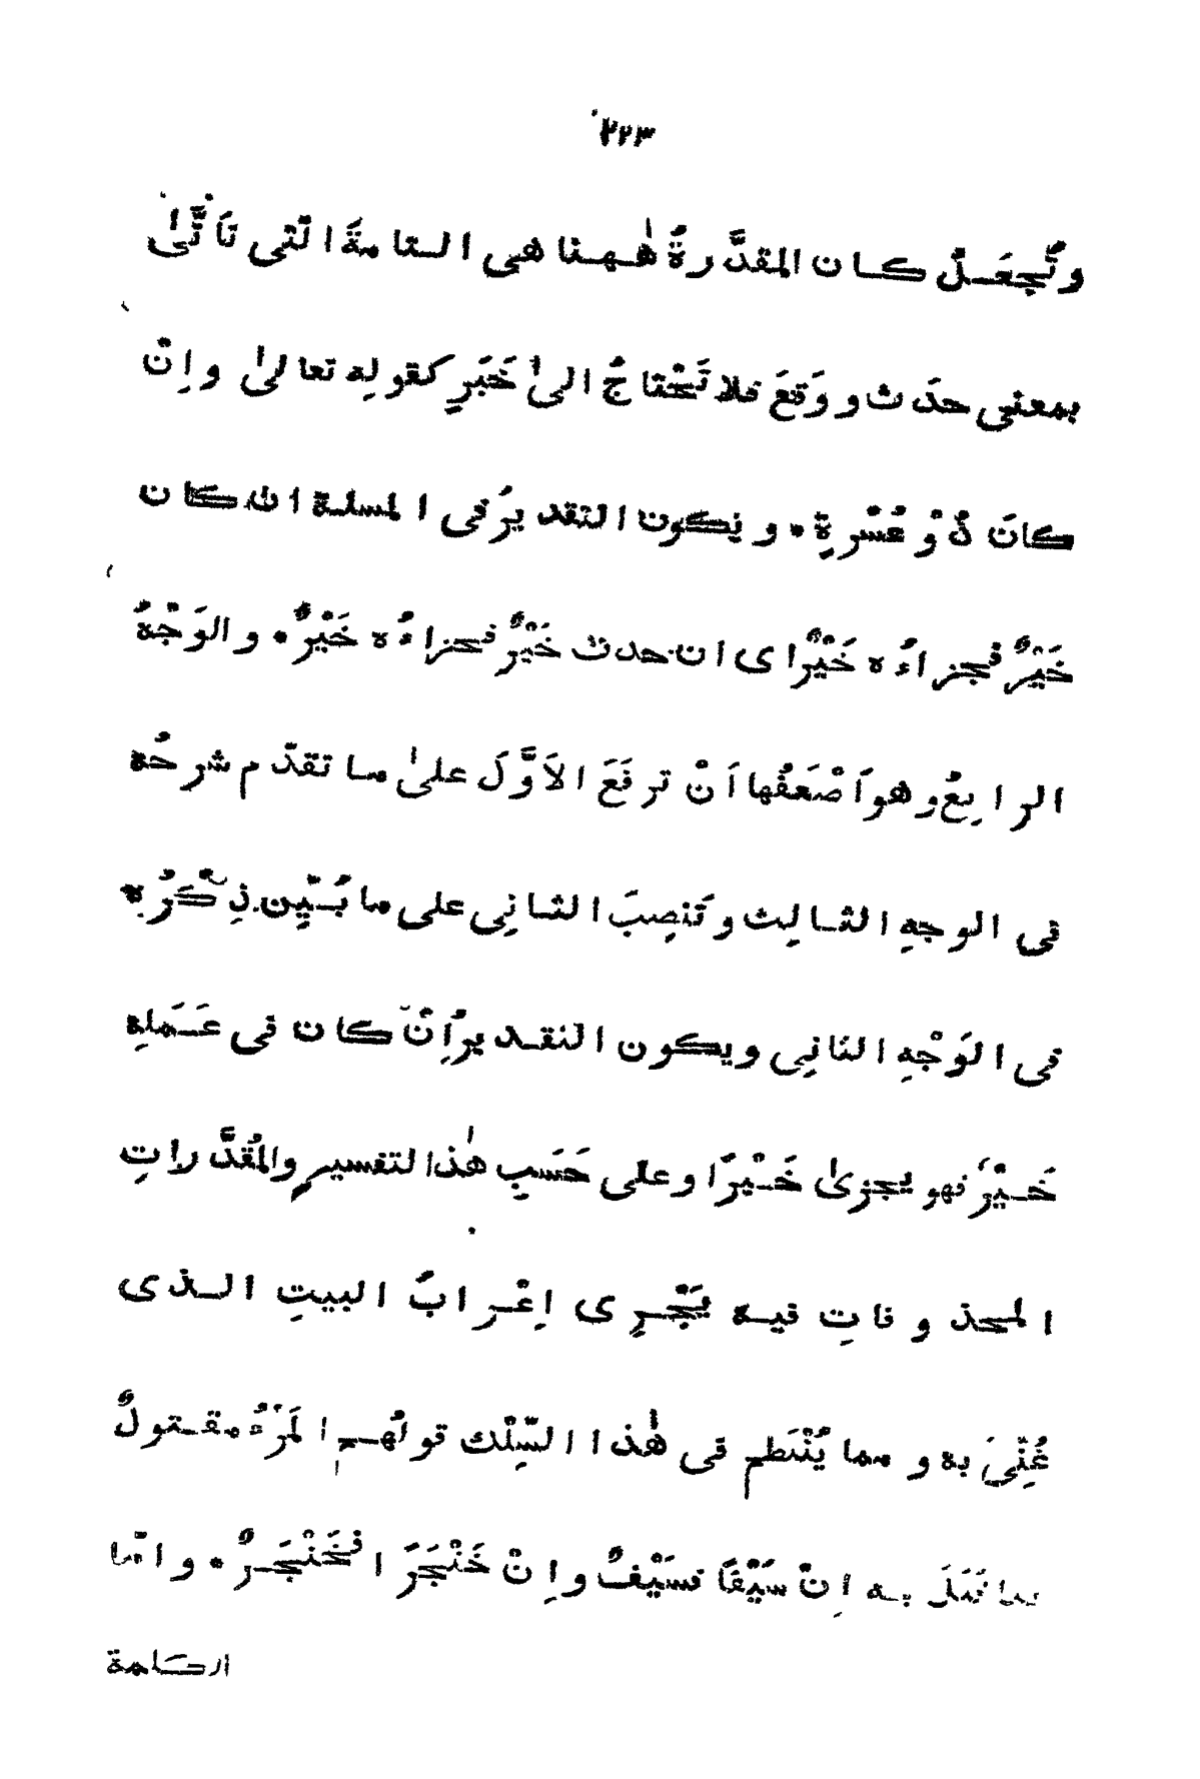 ٢٢٣
وتُجعَلُ كان المقدَّرةُ هٰهنا هى التامةَ التى تَأْتى
بمعنى حدَث ووَقعَ فلا تَحْتاجُ الىٰ خَبَرٍ كقولِه تعالىٰ وانْ
كانَ ذُوْ عُسْرةٍ * ويكون التقديرُ فى المسلة ان كان
خَيْرٌ فجزاءُه خَيْرٌ اى ان حدث خَيْرٌ فجزاءُه خَيْرٌ * والوَجْهُ
الرابِعُ وهو اَضْعَفُها اَنْ ترفَعَ الاَوَّلَ علىٰ ما تقدّم شرحُه
فى الوجهِ الثالِث وتَنصِبَ الثانِى على ما بُيّن ذِكْرُه
فى الوَجْهِ الثانِى ويكون التقدير اِنْ كان فى عَمَلِه
خَيْرٌ فهو يجزىٰ خَيْرًا وعلى حَسَبِ هٰذا التفسيرِ والمُقدَّراتِ
المحذوفاتِ فيه يَجْرِى اِعْرابُ البيتِ الذى
غُنِّىَ به ومما يُنْتَظم فى هٰذا السِّلْك قولُهم المَرْءُ مقتولٌ
بما قَتَلَ به اِنْ سَيْفًا فسَيْفٌ واِنْ خَنْجَرًا فخَنْجَرٌ * وامّا
الكلمة